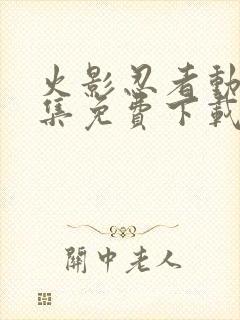 火影忍者動
集免費下載
關中老人